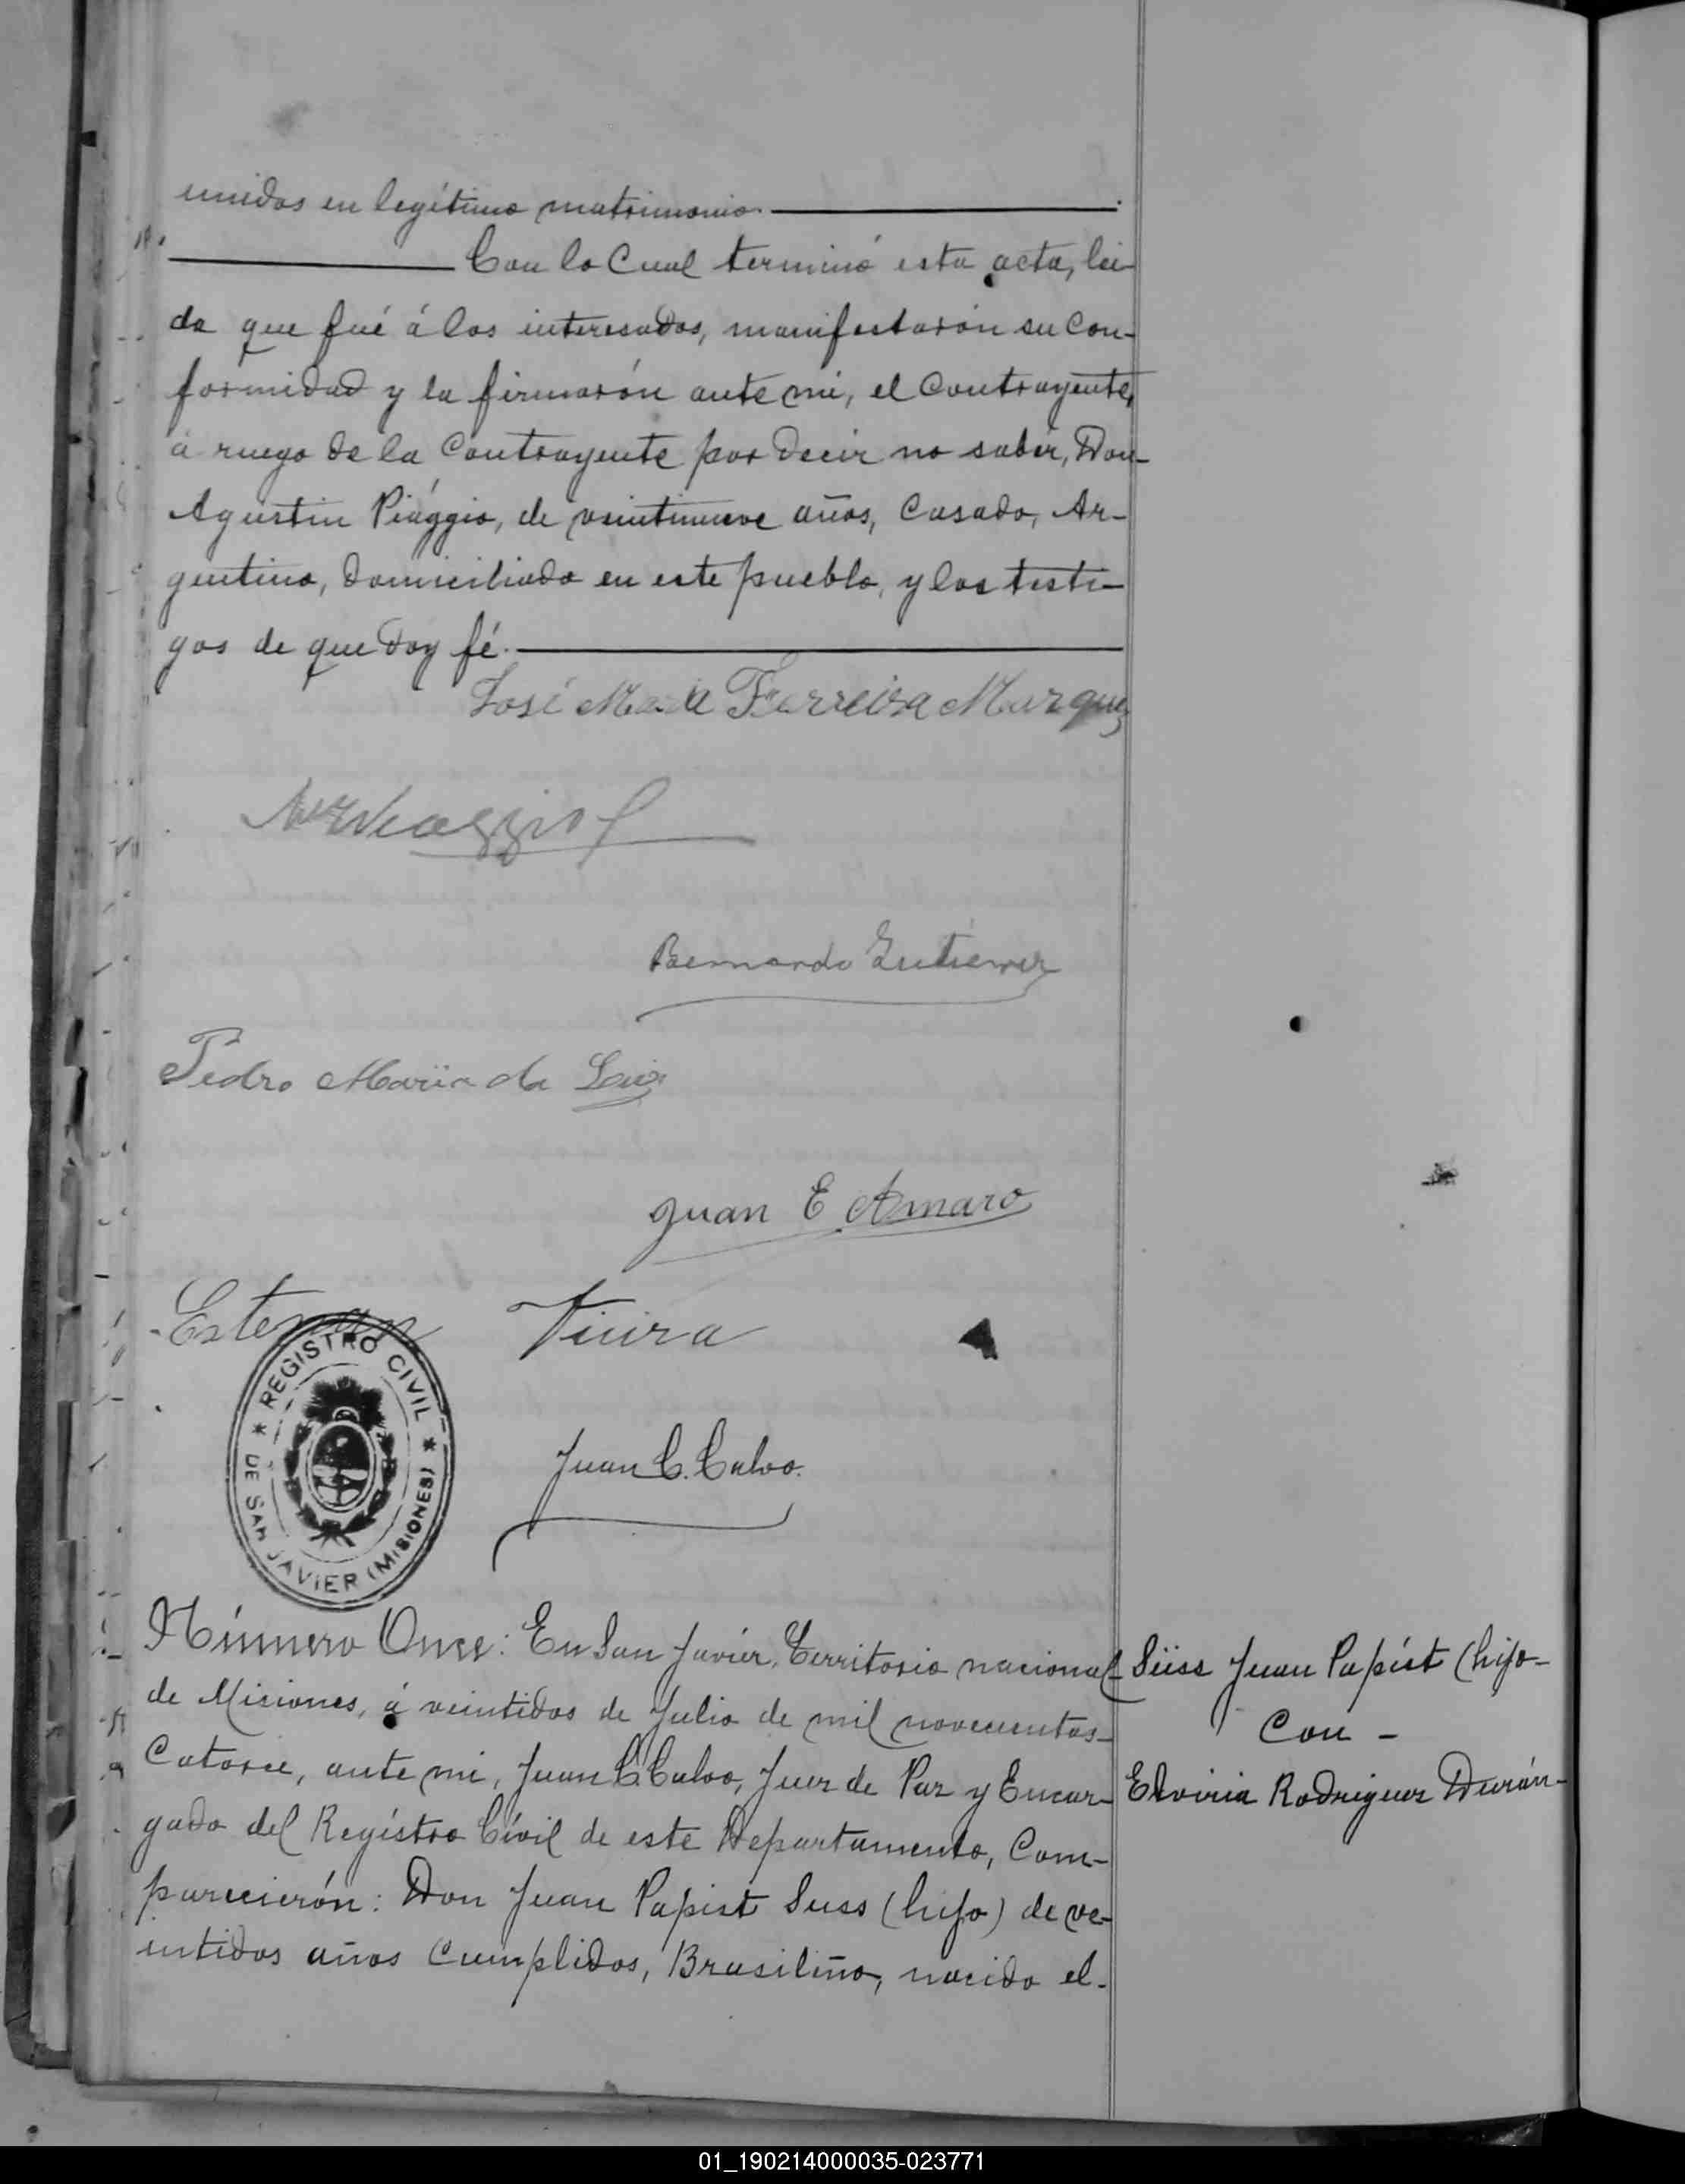 unidos en legítimo matrimonio.
Con lo Cual terminó esta acta, lei-
da que fué á los interesados, manifestarón su Con-
formidad y la firmarón ante mi, el Contrayente,
á ruego de la Contrayente por decir no saber, Don-
Agustin Piággio, de veintinueve años, Casado, Ar-
gentino, domiciliado en este pueblo, y los testi-
gos de que doy fé.
José Maria Ferreira Marques
Bernardo Gutierrez
Pedro Mariia da
Juan E Amaro
Estevan Vieira
REGISTRO CIVIL
DE SAN JAVIER (MISIONES)
Juan C. Calvo.
Número Once: En San Javiér, Territorio nacional-
de Misiones, á veintidos de Julio de mil novecientos-
Catorce, ante mi, Juan C. Calvo, Juez de Paz y Encar-
gado del Registro Cívil de este Departamento, Com-
parecierón: Don Juan Papist Suss (hijo) de ve-
intidos años Cumplidos, Brasileño, nacido el-
Süss Juan Papist (hijo-
Con -
Elviria Rodriguez Durán-
01_190214000035-023771